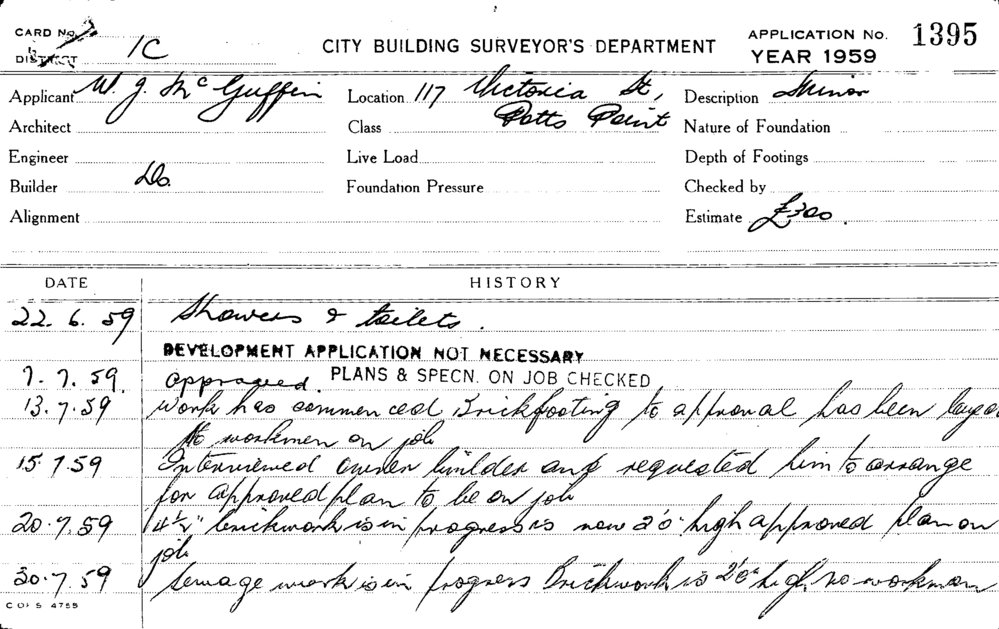 CARD No.
DISTRICT 1C
CITY BUILDING SURVEYOR'S DEPARTMENT
APPLICATION No. 1395
YEAR 1959
Applicant W. J. McGuffin
Location 117 Victoria St,
Potts Point
Description Minor
Architect
Class
Nature of Foundation
Engineer
Live Load
Depth of Footings
Builder Do.
Foundation Pressure
Checked by
Alignment
Estimate £300.
DATE HISTORY
22.6.59 Showers & toilets.
DEVELOPMENT APPLICATION NOT NECESSARY
7.7.59. approved. PLANS & SPECN. ON JOB CHECKED
13.7.59 Work has commenced Brickfooting to approval has been layed
No workmen on job
15.7.59 Interviewed owner builder and requested him to arrange
for approved plan to be on job
20.7.59 4½" brickwork is in progress is now 2'0" high approved plan on
job
30.7.59 Sewage work is in progress Brickwork is high no workman
C of S 4755